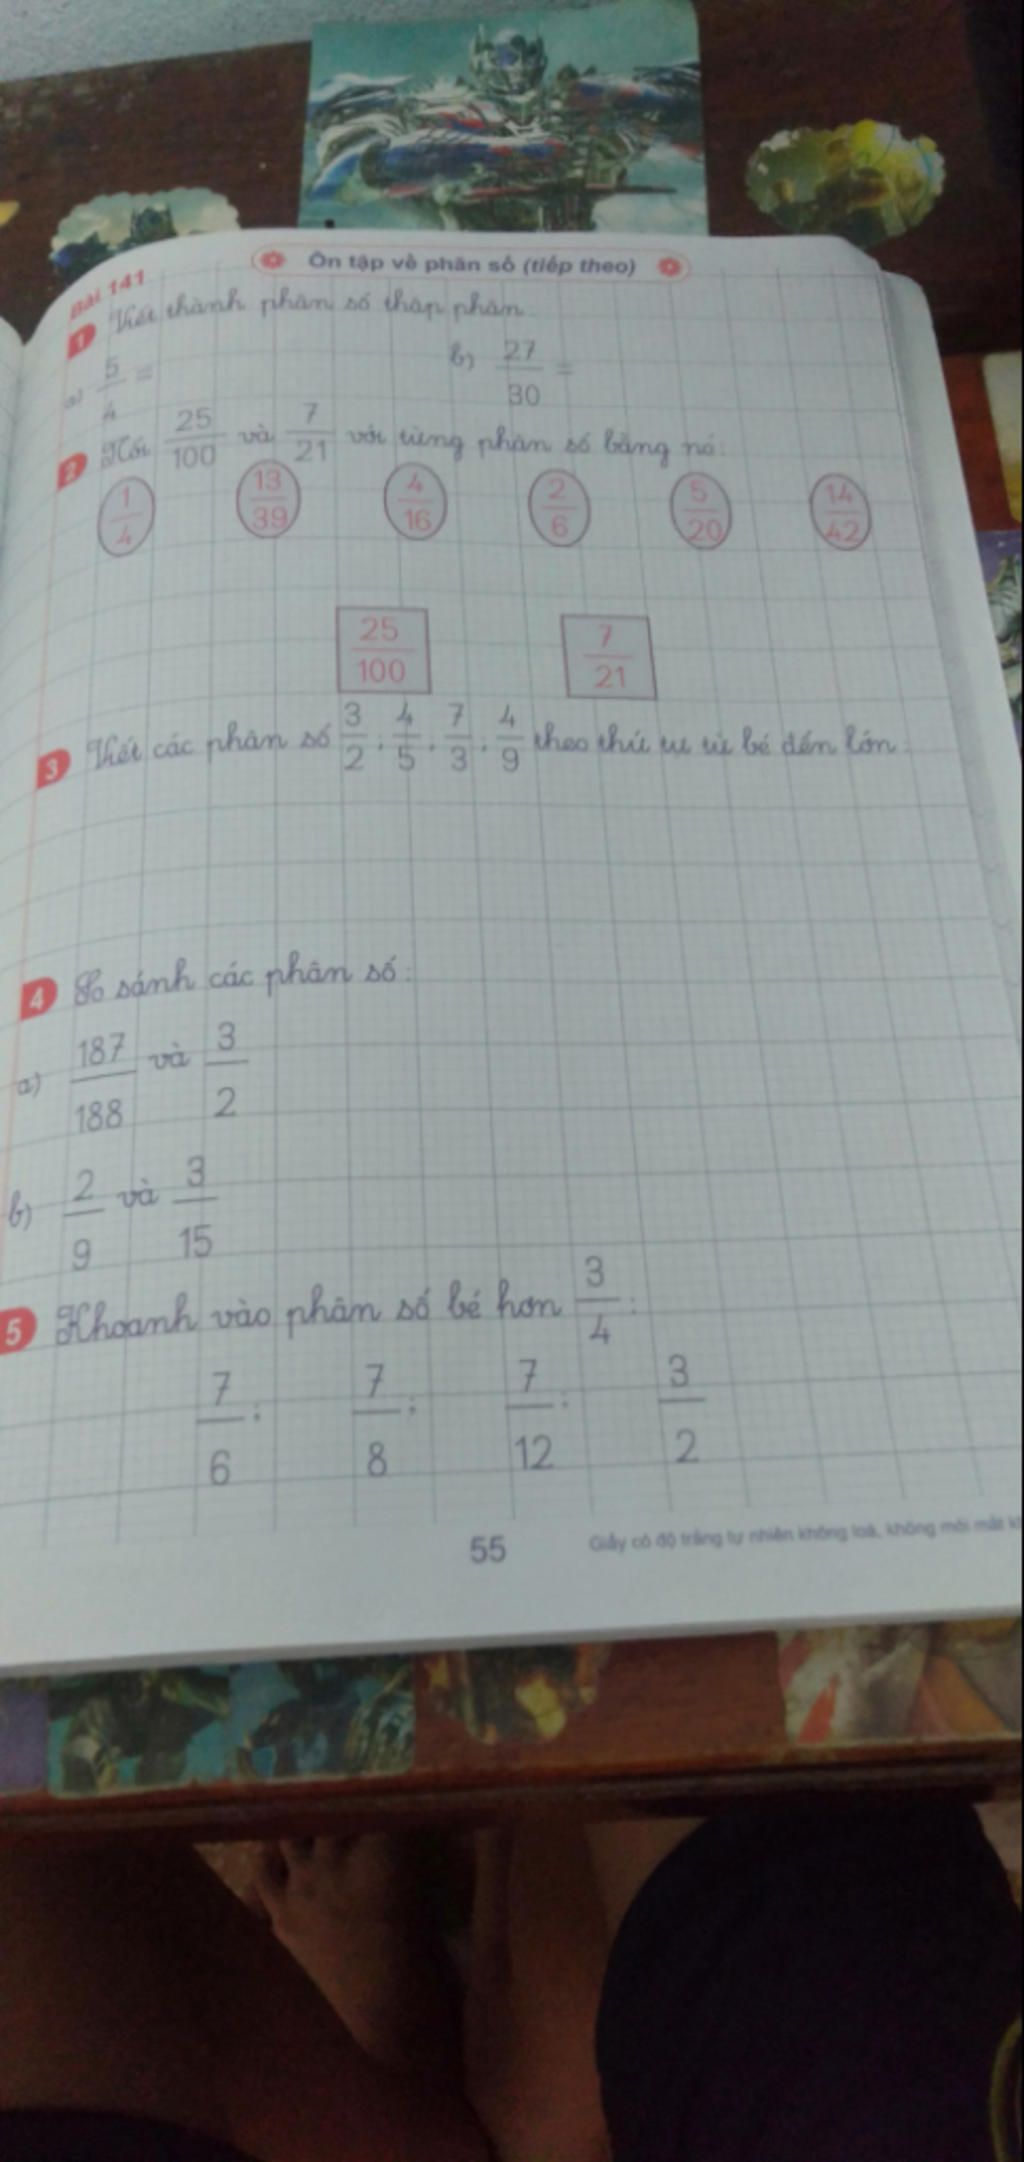 Ôn tập về phân số (tiếp theo)
Bài 141
1 Viết thành phân số thập phân
a) 5/4 = b) 27/30 =
2 Nối 25/100 và 7/21 với từng phân số bằng nó:
1/4 13/39 4/16 2/6 5/20 14/42
25/100 7/21
3 Viết các phân số 3/2; 4/5; 7/3; 4/9 theo thứ tự từ bé đến lớn:
4 So sánh các phân số:
a) 187/188 và 3/2
b) 2/9 và 3/15
5 Khoanh vào phân số bé hơn 3/4:
7/6; 7/8; 7/12; 3/2
55 Giấy có độ trắng tự nhiên không loá, không mỏi mắt